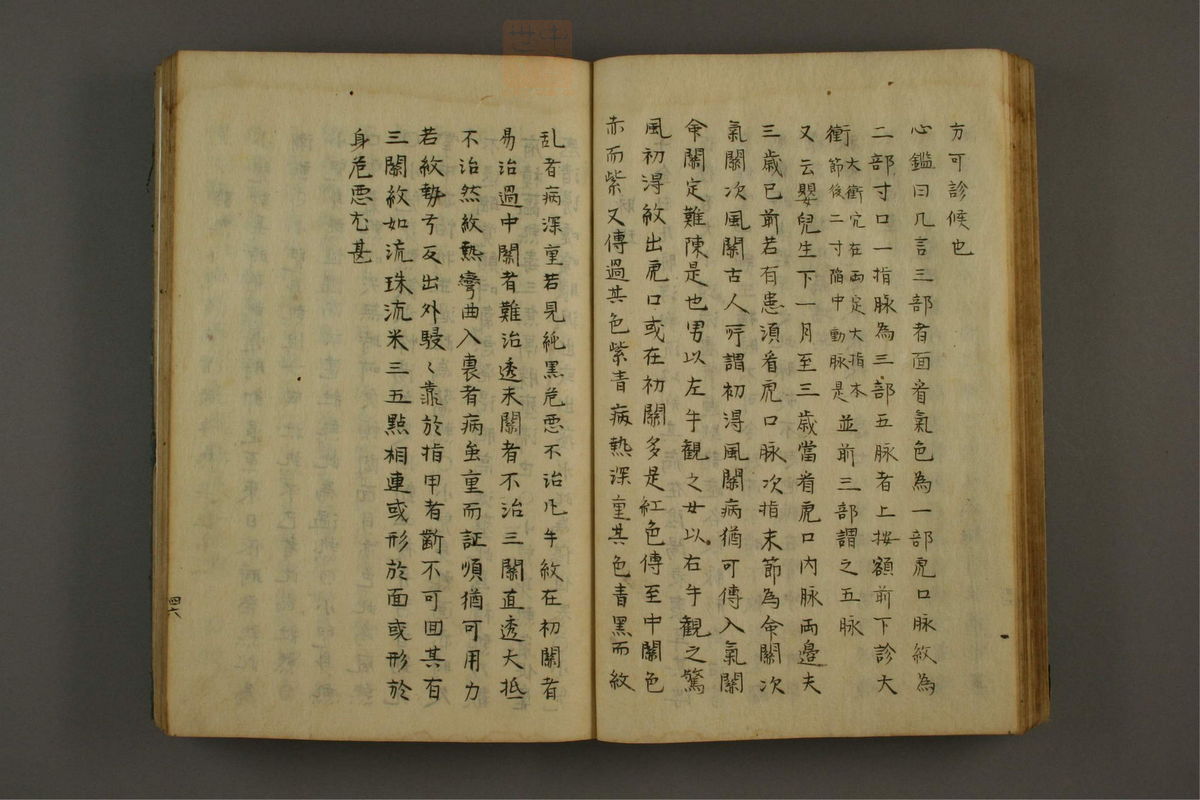 方可診候也
心鑑曰凡言三部者面看氣色為一部虎口脉紋為
二部寸口一指脉為三部五脉者上按額前下診大
衝大衝穴在両定大指本節後二寸陷中動脉是並前三部謂之五脉
又云嬰兒生下一月至三歲當看虎口內脉両邊夫
三歲已前若有患湏看虎口脉次指末節為命關次
氣關次風關古人所謂初淂風關病猶可傳入氣關
命關定難陳是也男以左手觀之女以右手觀之驚
風初淂紋出虎口或在初關多是紅色傳至中關色
赤而紫又傳過其色紫青病熱深重其色青黑而紋
乱者病深重若見純黑危悪不治凡手紋在初關者
易治過中關者難治透末關者不治三關直透大抵
不治然紋熱彎曲入裏者病虽重而証順猶可用力
若紋勢弓反出外駸〻靠於指甲者斷不可回其有
三關紋如流珠流米三五點相連或形於面或形於
身危悪尤甚
四六